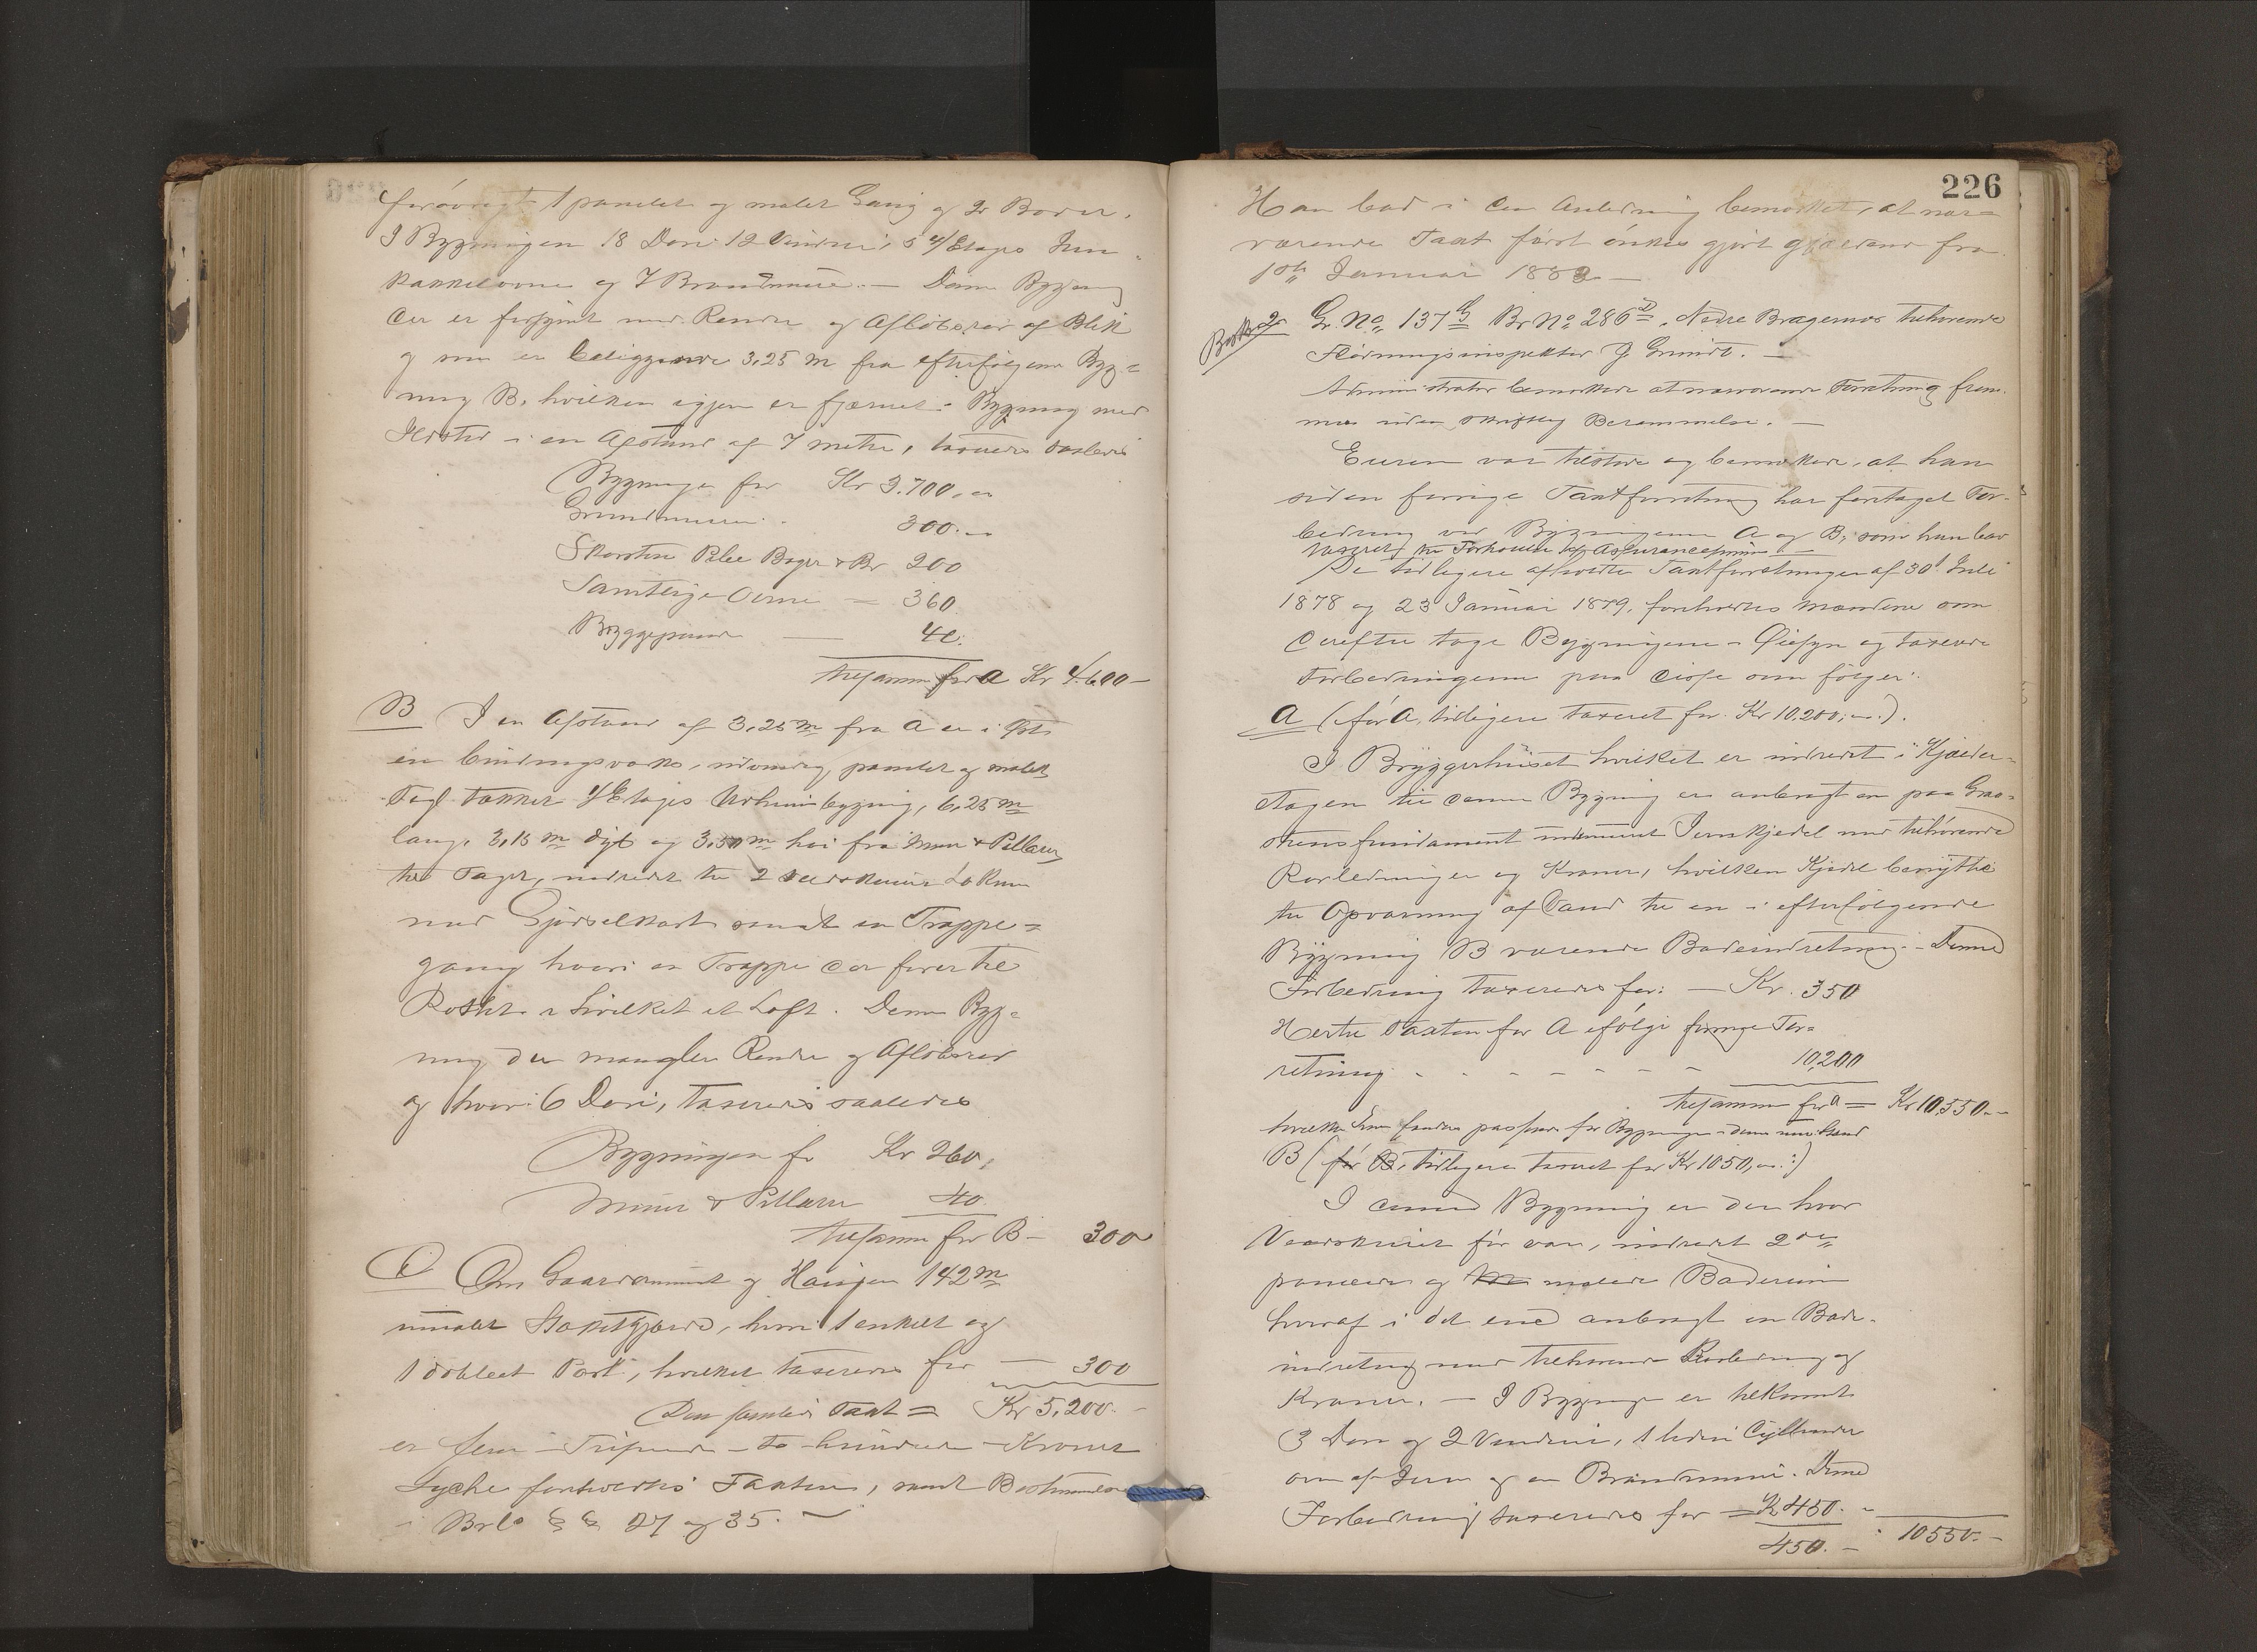 forøvrigt 1 panelet og malet Gang og 2 Boder.
I Bygningen 18 Døre 12 Vinduer, 5 4/Etages Jern
Kakkelovne og 7 Brandmure. — Denne Bygning
der er forsynet med Render og Afløbsrør af Blik
og som er beliggende 3,25 m fra efterfølgende Byg=
ning B, hvilken igjen er fjernet Bygning med
Ildsted i en Afstand af 7 metre, taxeredes saaledes
Bygningen for Kr 3.700,
Grundmuren 300.
Skorsten Piber Bager & Br 200
Samtlige Ovne = 360
Bryggepande — 40.
tilsammen for A Kr 4.600 —
B I en Afstand af 3,25 m fra A er opf.
en bindingsværks, udvendig panelet og malet
Tegl takket 1/Etages Udhusbygning, 6,25 m
lang, 3,15 m dyb og 3,50 m høi fra Muur & Pillarer
til Taget, indredet til 2 Vedskuur Lokum
med Gjødselkast samt en Trappe=
gang hvori en Trappe der fører til
Røstet i hvilket et Loft. Denne Byg=
ning der mangler Render og Afløbsrør
og hvori 6 Døre, taxeredes saaledes
Bygningen for Kr 260,
Muur & Pillarer 40
tilsammen for B — 300
C Om Gaardsrummet og Haugen 142 m
umalet Stakitgjerde, hvori 1 enkelt og
1 dobbelt Port, hvilket taxeredes for — 300
Den samlede Taxt = Kr 5,200. —
er fem Tusinde to hundrede Kroner
Lyche forelæstes Taxten, samt Bestemmelsen
i Brl. §§ 27 og 35. —
226
Han bad i den Anledning bemærket, at nær=
værende Taxt først ønskes gjort gjældende fra
1ste Januar 1883 —
2 Gr. No. 137 G Br No. 286 D. Nedre Bragernes tilhørende
Flødningsinspektør J Grundt. —
Administrator bemærkede at nærværende Forretning frem=
mes uden skriftlig Berammelse. —
Eieren var tilstede og bemærkede, at han
siden forrige Taxtforretning har foretaget For=
bedring ved Bygningerne A og B, som han bad
taxeret til Forhøielse af Assurancesummen —
De tidligere afholdte Taxtforretninger af 30 Juli
1878 og 23 Januar 1879, forelæstes Mændene som
derefter toge Bygningerne i Øiesyn og taxerede
Forbedringerne paa disse som følger:
A (før A, tidligere taxeret for Kr 10,200,).
I Bryggerhuset hvilket er indredet i Kjelder=
etagen til denne Bygning er anbragt en paa Graa=
stensfundament indmuret Jernkjedel med tilhørende
Rørledninger og Kraner, hvilken Kjedel benyttes
til Opvarmning af Vand til en i efterfølgende
Bygning B værende Badeindretning. — Denne
Forbedring taxeredes for: — Kr. 350
Hertil Taxten for A ifølge forrige For=
retning 10,200
tilsammen for A = Kr 10,550.
hvilken Sum fandtes passende for Bygningen i dens nu Stand
B (før B, tidligere taxeret for Kr 1050,:)
I denne Bygning er der hvor
Vedskuret før var, indredet 2de
panelede og malede Baderum
hvoraf i det ene anbragt en Bade=
indretning med tilhørende Rørledning og
Kraner. — I Bygningen er tilkommet
3 Døre og 2 Vinduer, 1 liden Cylinder
ovn af Jern og en Brandmuur. Denne
Forbedring taxeredes for = Kr 450. —
450. — 10550. —